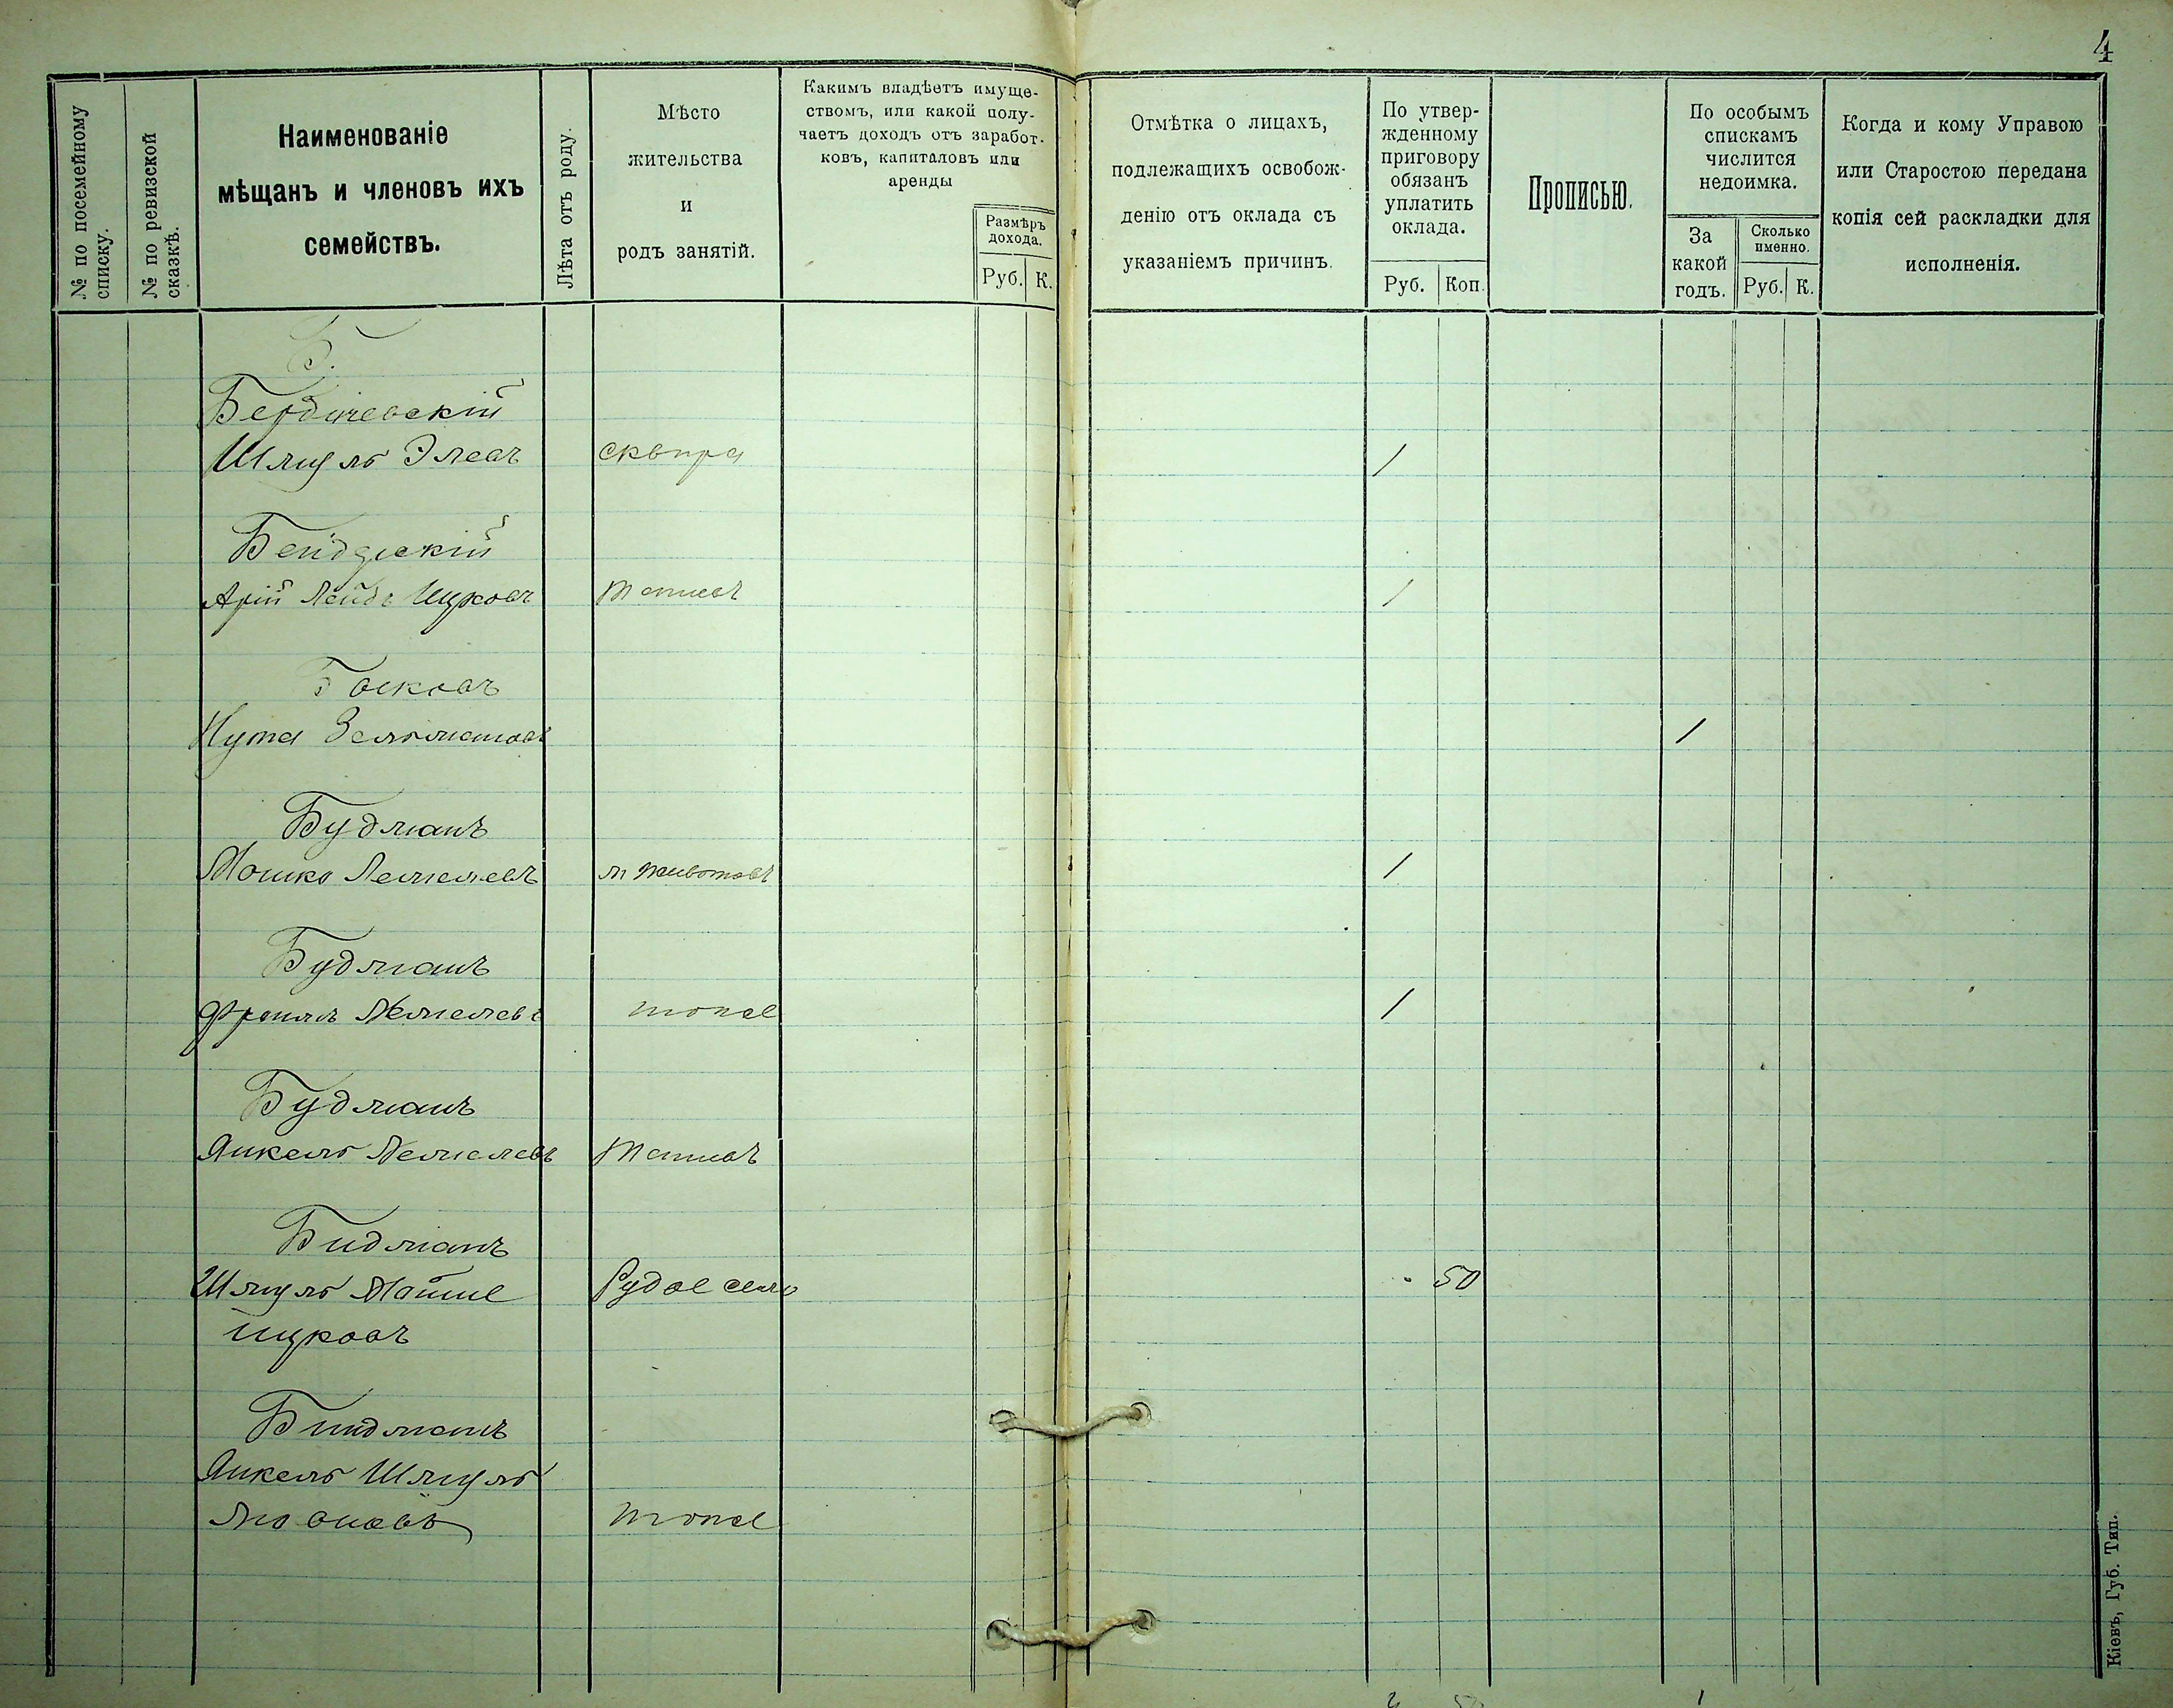 4
№ по посемейному списку.
№ по ревизской сказкѣ.
Наименованіе
мѣщанъ и членовъ ихъ
семействъ.
Лѣта отъ роду.
Мѣсто
жительства
и
родъ занятій.
Какимъ владѣетъ имуще-
ствомъ, или какой полу-
чаетъ доходъ отъ заработ-
ковъ, капиталовъ или
аренды
Размѣръ
дохода.
Руб. К.
Отмѣтка о лицахъ,
подлежащихъ освобож-
денію отъ оклада съ
указаніемъ причинъ.
По утвер-
жденному
приговору
обязанъ
уплатить
оклада.
Руб. Коп.
Прописью.
По особымъ
спискамъ
числится
недоимка.
За
какой
годъ.
Сколько
именно.
Руб. К.
Когда и кому Управою
или Старостою передана
копія сей раскладки для
исполненія.
Б.
Бердичевскій
Шмуль Элевъ сквира 1
Арій Лейбъ 1
Нута 1
Будманъ
Мошко Лемелевъ м Животовъ 1
Будманъ
Фроимъ Лемелевъ тоже 1
Будманъ
Янкель Лемелевъ
Бидманъ
Шмуль Рудое село 50
Биндманъ
Янкель Шмуль
тоже
Кіевъ, Губ. Тип.